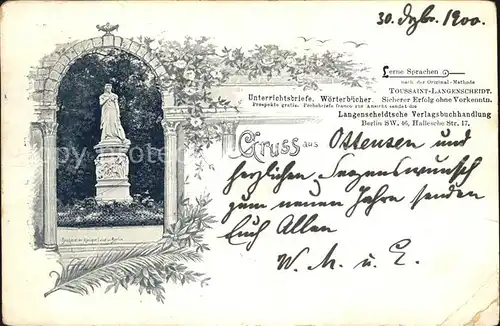 30. Dzbr. 1900.
Lerne Sprachen
nach der Original-Methode
TOUSSAINT-LANGENSCHEIDT.
Unterrichtsbriefe. Wörterbücher. Sicherer Erfolg ohne Vorkenntn.
Prospekte gratis. Probebriefe franco zur Ansicht sendet die
Langenscheidtsche Verlagsbuchhandlung
Berlin SW. 46, Hallesche Str. 17.
Gruss aus Ottensen und
herzlichen Segenswunsch
zum neuen Jahre senden
Euch Allen
W. M. u. E.